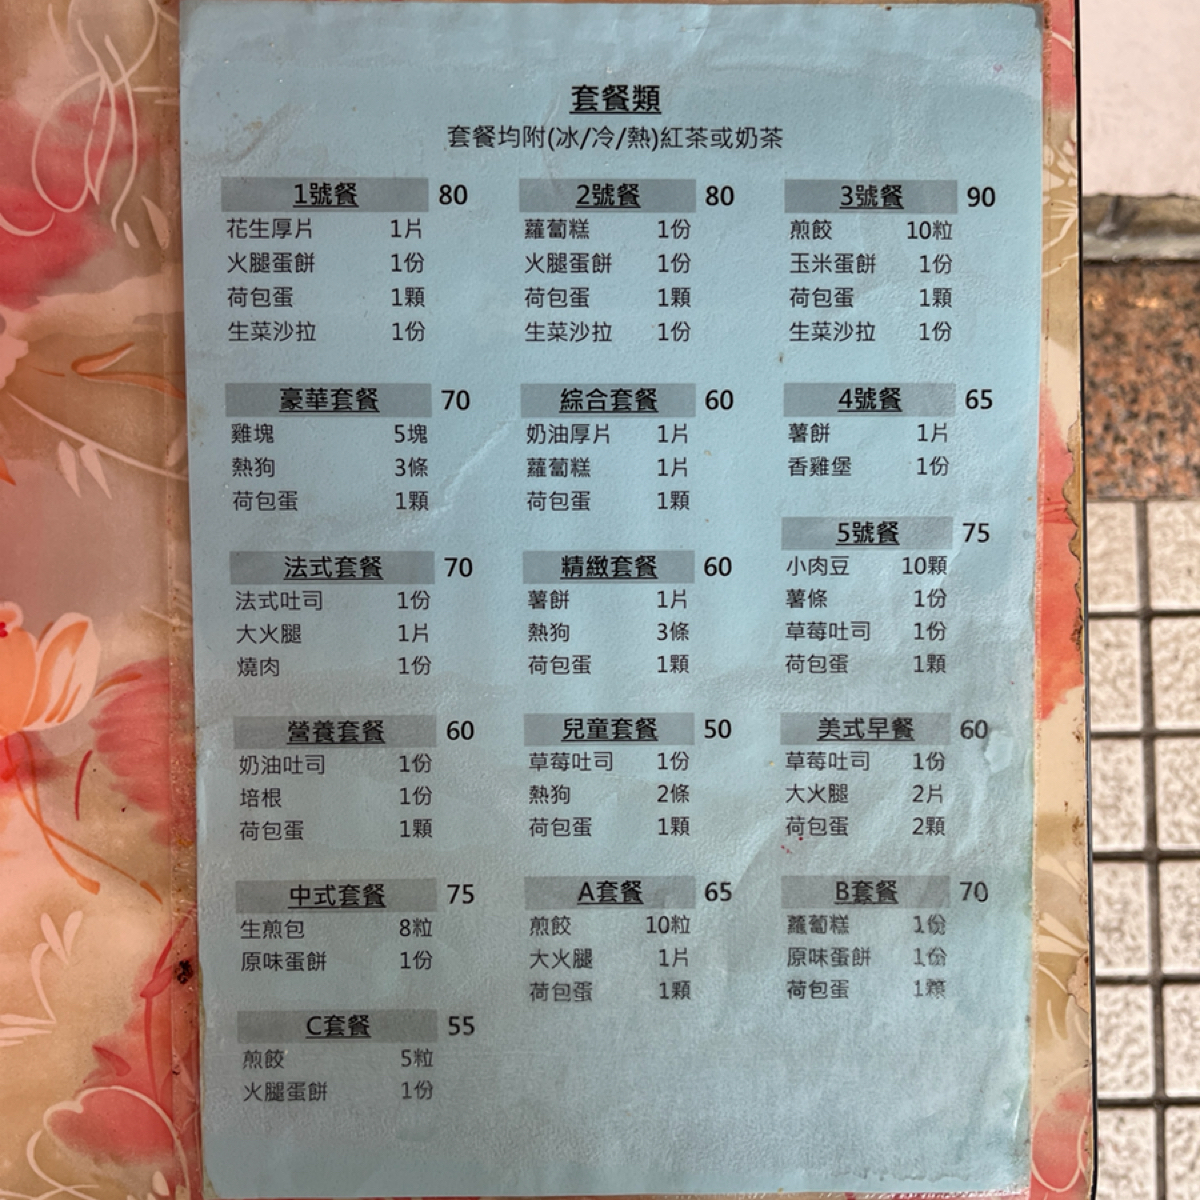 套餐類
套餐均附(冰/冷/熱)紅茶或奶茶
1號餐 80
花生厚片 1片
火腿蛋餅 1份
荷包蛋 1顆
生菜沙拉 1份
2號餐 80
蘿蔔糕 1份
火腿蛋餅 1份
荷包蛋 1顆
生菜沙拉 1份
3號餐 90
煎餃 10粒
玉米蛋餅 1份
荷包蛋 1顆
生菜沙拉 1份
豪華套餐 70
雞塊 5塊
熱狗 3條
荷包蛋 1顆
綜合套餐 60
奶油厚片 1片
蘿蔔糕 1片
荷包蛋 1顆
4號餐 65
薯餅 1片
香雞堡 1份
5號餐 75
小肉豆 10顆
薯條 1份
草莓吐司 1份
荷包蛋 1顆
法式套餐 70
法式吐司 1份
大火腿 1片
燒肉 1份
精緻套餐 60
薯餅 1片
熱狗 3條
荷包蛋 1顆
營養套餐 60
奶油吐司 1份
培根 1份
荷包蛋 1顆
兒童套餐 50
草莓吐司 1份
熱狗 2條
荷包蛋 1顆
美式早餐 60
草莓吐司 1份
大火腿 2片
荷包蛋 2顆
中式套餐 75
生煎包 8粒
原味蛋餅 1份
A套餐 65
煎餃 10粒
大火腿 1片
荷包蛋 1顆
B套餐 70
蘿蔔糕 1份
原味蛋餅 1份
荷包蛋 1顆
C套餐 55
煎餃 5粒
火腿蛋餅 1份